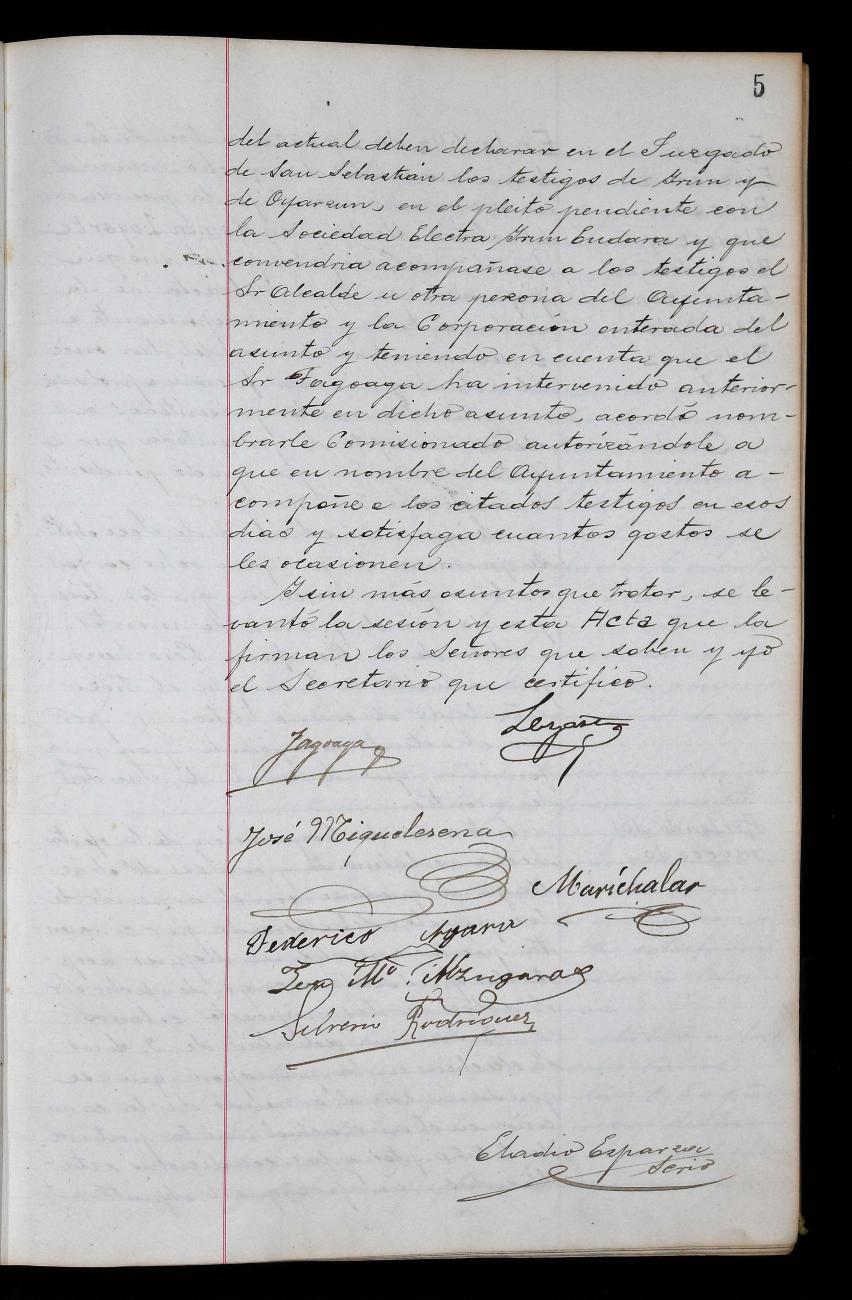 5
del actual deben declarar en el Juzgado
de San Sebastián los testigos de Irun y
de Oyarzun, en el pleito pendiente con
la Sociedad Electra Irun Endara y que
convendria acompañase a los testigos el
Sr Alcalde u otra persona del Ayunta-
miento y la Corporación enterada del
asunto y teniendo en cuenta que el
Sr Fagoaga ha intervenido anterior-
mente en dicho asunto, acordó nom-
brarle Comisionado autorizándole a
que en nombre del Ayuntamiento a-
compañe a los citados testigos en esos
dias y satisfaga cuantos gastos se
les ocasionen.
Y sin más asuntos que tratar, se le-
vantó la sesión y esta Acta que la
firman los Señores que saben y yo
el Secretario que certifico.
Fagoaga
José Miguelesena
Marichalar
Federico
Mº
Silverio Rodríguez
Eladio Esparza
Serio